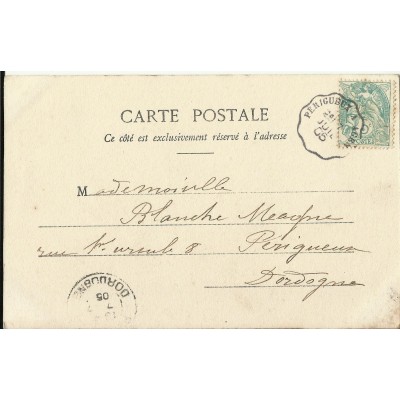 CARTE POSTALE
Ce côté est exclusivement réservé à l'adresse
PERIGUEUX
05
Mademoiselle
Blanche
rue Ste ursule 8 Périgueux
Dordogne
DORDOGNE
7
05